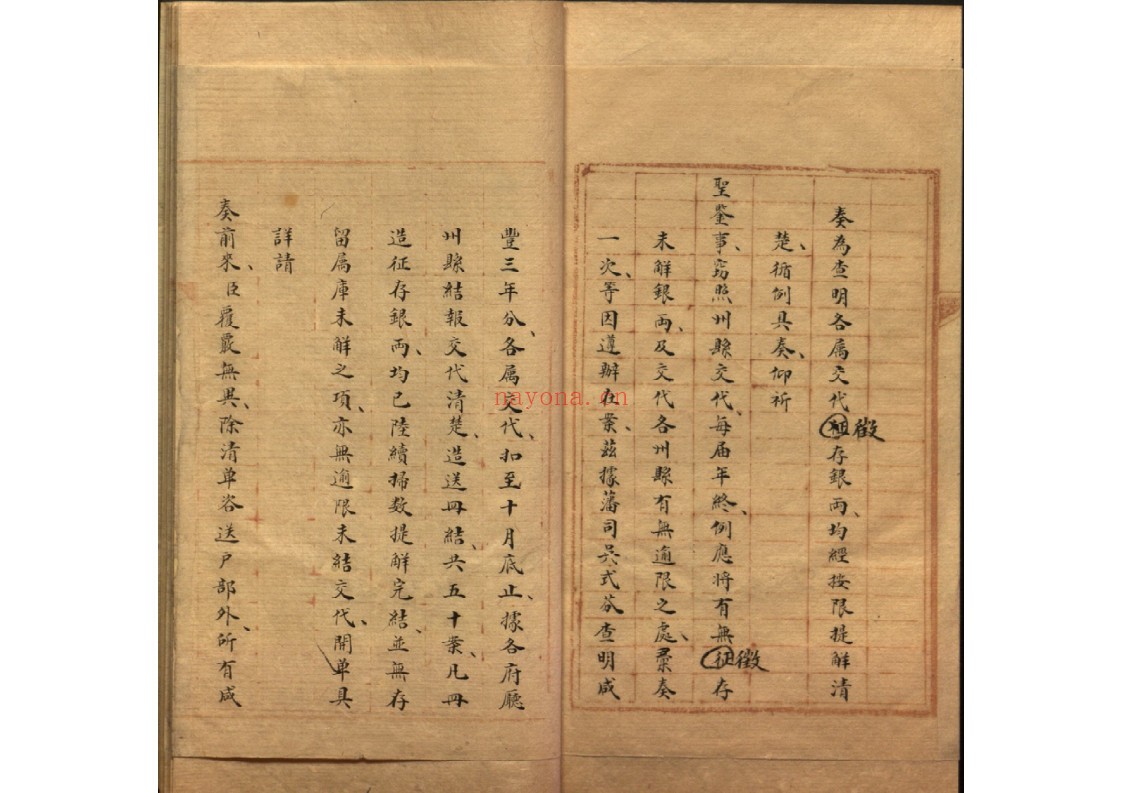 奏為查明各属交代征徵存銀两、均經按限提解清
楚、循例具奏、仰祈
聖鉴事、窃照州縣交代、每届年終、例應将有無征徵存
未解銀两、及交代各州縣有無逾限之處、彚奏
一次、等因遵辦在案、兹據藩司吴式芬查明咸
豐三年分、各属交代、扣至十月底止、據各府廳
州縣結報交代清楚、造送冊結、共五十案、凡冊
造征存銀两、均已陸續掃数提解完結、並無存
留属庫未解之項、亦無逾限未結交代、開单具
詳請
奏前来、臣覆覈無異、除清单咨送户部外、所有咸
nayona.cn